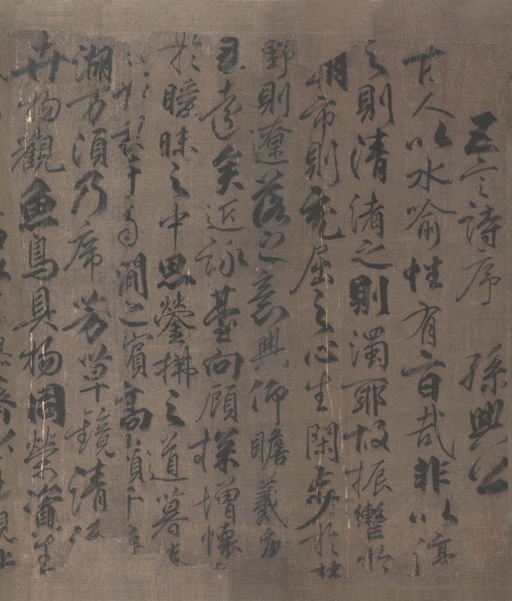 五言詩序 孫興公
古人以水喻性有旨哉非以渟
之則清淆之則濁耶故振轡於
朝市則充屈之心生閑步於林
野則遼落之意興仰瞻羲唐
遠矣近詠臺閣顧探增懷
於曖昧之中思瑩拂之道暮春
于南澗之濱高嶺千尋
湖万頃乃席芳草鏡清流
卉物觀魚鳥具物同榮資生